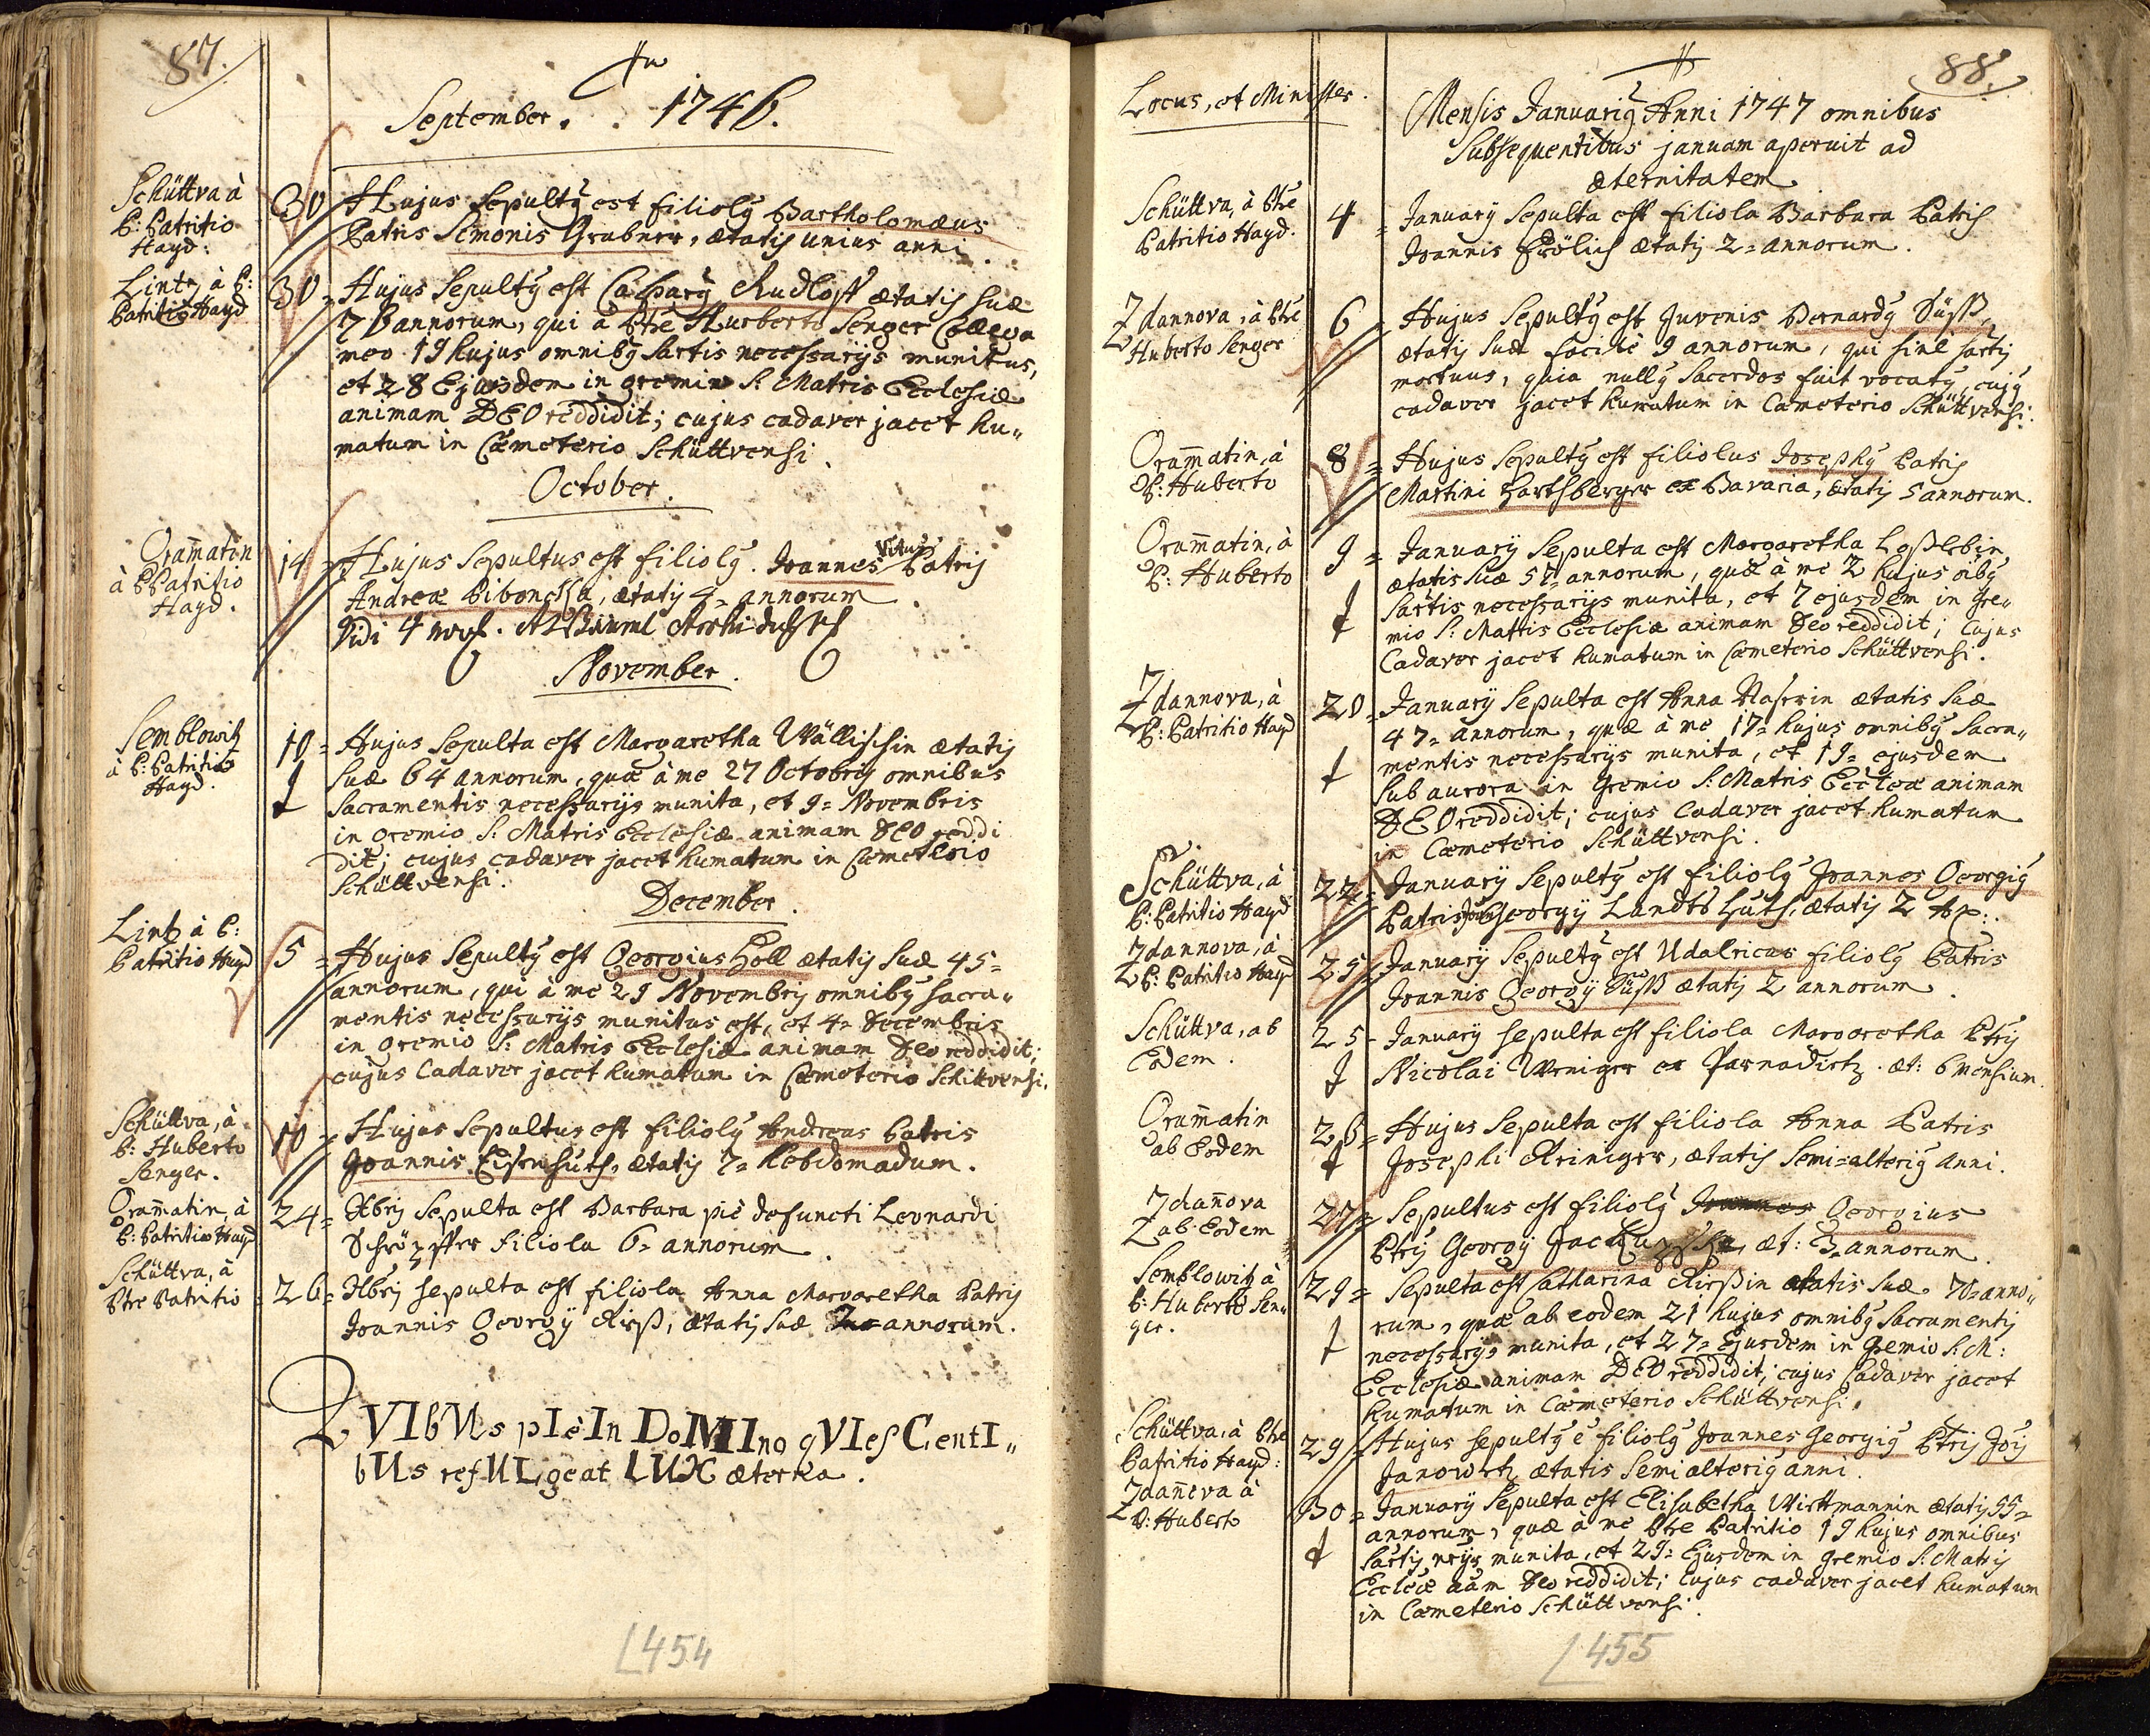 87.
September. . 1746.
Schüttva à
P: Patritio
Hayd:
30 Hujus Sepultq est filiolq Bartholomæus
Patris Simonis Grubner, ætatis unius anni.
Lintz à P:
Patritio Hayd
30 = Hujus Sepultq est Casparq Rudloff ætatis suæ
76 annorum, qui à Ptre Hurberto Senger Coæva
meo 19 hujus omnibq sactis necessarijs munitus,
et 28 Ejusdem in gremio S: Matris Ecclesiæ
animam DEO reddidit; cujus cadaver jacet hu„
matum in Cæmeterio Schüttvensi.
October.
Gramatin
à P Patritio
Hayd.
14 = Hujus Sepultus est filiolq. Joannes Vitus Patris
Andreæ Piboncka, ætatis 4 = annorum.
Vidi 4
November.
Semblowitz
à P: Patritio
Hayd.
10 = Hujus Sepulta est Margaretha Wällischin ætatis
suæ 64 annorum, quæ à me 27 Octobris omnibus
Sacramentis necessarijs munita, et 9 = Novembris
in gremio S: Matris Ecclesiæ animam DEO reddi
dit; cujus cadaver jacet humatum in Cæmeterio
Schüttvensi.
December.
Lintz à P:
Patritio Hayd
5 = Hujus Sepultq est Georgius Höll ætatis suæ 45 =
annorum, qui à me 29 Novembris omnibq sacra„
mentis necessarijs munitus est, et 4 = Decembris
in gremio S: Matris Ecclesiæ animam Deo reddidit;
cujus Cadaver jacet humatum in Cæmeterio Schittvensi.
Schüttva, à
P: Huberto
Senger.
10 = Hujus Sepultus est filiolq Andreas Patris
Joannis Eisenhuth, ætatis 7 = hebdomadum.
Gramatin, à
P: Patritio Hayd
24 = Xbris Sepulta est Barbara piè defuncti Leonardi
Schröpffer filiola 6 = annorum.
Schüttva, à
Ptre Patritio
26 = Xbris sepulta est filiola Anna Margaretha Patris
Joannis Georgij Rieß, ætatis suæ annorum.
QVIbVs pIè In DoMIno qVIesCentI„
bUs refULgeat LUX æterna.
L454
88.
Locus, et Minister.
Mensis Januariq Anni 1747 omnibus
Subsequentibus januam aperuit ad
æternitatem
Schüttva, à Ptre
Patritio Hayd.
4 = Januarij Sepulta est filiola Barbara Patris
Joannis Frölich ætatis 2 = annorum.
Zdannova, à Ptre
Huberto Senger
6 = Hujus Sepultq est Juvenis Bernardq Süß
ætatis suæ facile 9 annorum, qui sine sactis
mortuus, quia nullq Sacerdos fuit vocatq, cujq
cadaver jacet humatum in Cæmeterio Schüttvensi.
Gramatin, à
P: Huberto
8 = Hujus Sepultq est filiolus Josephq Patris
Martini Harthberger ex Bavaria, ætatis 5 annorum.
Gramatin, à
P: Huberto
9 = Januarij Sepulta est Margaretha Loßlebin
ætatis suæ 57 annorum, quæ à me 2 hujus oibq
sactis necessarijs munita, et 7 ejusdem in gre„
mio S: Matris Ecclesiæ animam Deo reddidit; cujus
Cadaver jacet humatum in Cæmeterio Schüttvensi.
Zdannova, à
P: Patritio Hayd
20 = Januarij Sepulta est Anna ætatis suæ
47 = annorum, quæ à me 17 = hujus omnibq Sacra„
mentis necessarijs munita, et 19 = ejusdem
sub aurora in gremio S: Matris Eccleæ animam
DEO reddidit; cujus Cadaver jacet humatum
in Cæmeterio Schüttvensi.
Schüttva, à
P: Patritio Hayd
22 = Januarij Sepultq est filiolq Joannes Georgiq
Patris Georgij Landts huth, ætatis 2
Zdannova, à
P: Patritio Hayd
25 = Januarij Sepultq est Udalricus filiolq Patris
Joannis Georgij Süß ætatis 2 annorum.
Schüttva, ab
Eodem.
25 - Januarij sepulta est filiola Margaretha Ptris
Nicolai Weniger ex Parnadirtz. æt: 6 Mensium.
Gramatin
ab Eodem
26 = Hujus Sepulta est filiola Anna Patris
Josephi Reiniger, ætatis semi=alteriq Anni.
Zdanova
ab Eodem
27 = Sepultus est filiolq Joannes Georgius
Ptris Georgij æt: 3 = annorum.
Semblowitz à
P: Huberto Sen„
ger.
29 = Sepulta est Catharina Rießin ætatis suæ 70 = anno„
rum, quæ ab eodem 21 hujus omnibq Sacramentis
necessarijs munita, et 27 = Ejusdem in gremio S: M:
Ecclesiæ animam DEO reddidit, cujus Cadaver jacet
humatum in Cæmeterio Schüttvensi.
Schüttva, à Ptre
Patritio Hayd:
29 = Hujus sepultq e filiolq Joannes Georgiq Ptris Jois
Janowetz ætatis semi alteriq anni.
Zdanova à
P: Huberto
30 = Januarij Sepulta est Elisabetha Wittmannin ætatis 55 =
annorum, quæ à me Ptre Patritio 19 hujus omnibus
sactis nrijs munita, et 29 = Ejusdem in gremio S: Matris
Eccleæ aam Deo reddidit; cujus cadaver jacet humatum
in Cæmeterio Schüttvensi.
L455